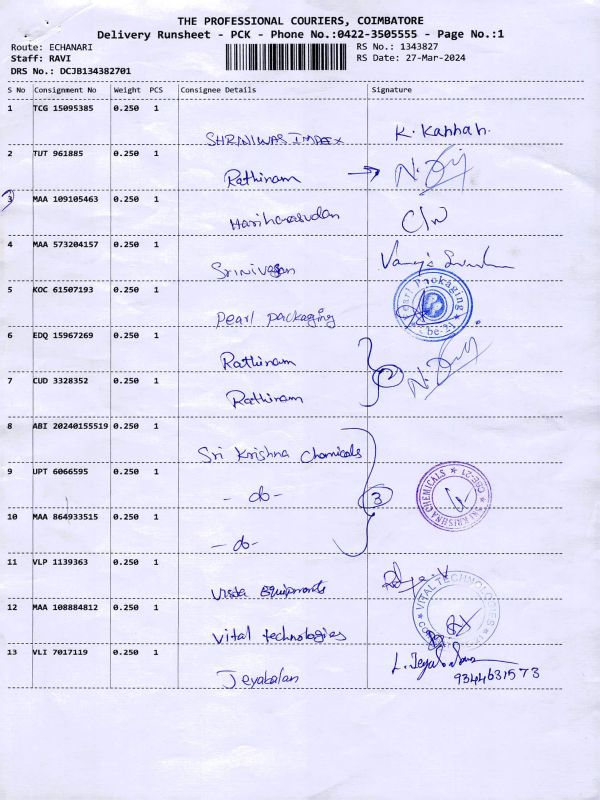 THE PROFESSIONAL COURIERS, COIMBATORE
Delivery Runsheet - PCK - Phone No.:0422-3505555 - Page No.:1
Route: ECHANARI RS No.: 1343827
Staff: RAVI RS Date: 27-Mar-2024
DRS No.: DCJB134382701
S No Consignment No Weight PCS Consignee Details Signature
1 TCG 15095385 0.250 1
SHRINIWAS IMPEX K. Kannan.
2 TUT 961885 0.250 1
Rathinam
3 MAA 109105463 0.250 1
Hariharasudan
4 MAA 573204157 0.250 1
Srinivasan
5 KOC 61507193 0.250 1
Pearl packaging Pearl Packaging Cbe-21
6 EDQ 15967269 0.250 1
Rathinam
7 CUD 3328352 0.250 1
Rathinam 2
8 ABI 20240155519 0.250 1
Sri Krishna Chemicals
9 UPT 6066595 0.250 1
- do - 3 SRI KRISHNA CHEMICALS CBE-21
10 MAA 864933515 0.250 1
- do -
11 VLP 1139363 0.250 1
equipments
12 MAA 108884812 0.250 1
Vital technologies VITAL TECHNOLOGIES
13 VLI 7017119 0.250 1
Jeyabalan
9344631573